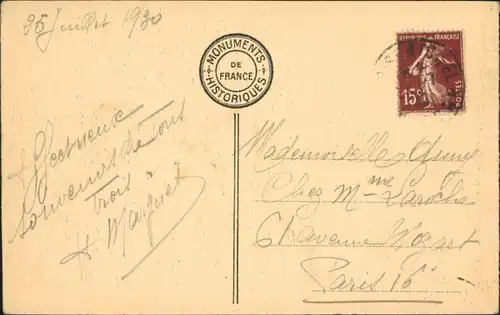 25 Juillet 1930
MONUMENTS
DE
FRANCE
HISTORIQUES
REPUBLIQUE FRANÇAISE
15c
POSTES
Affectueux
souvenirs de tous
Trois
H Marquet
Mademoiselle
Chez Mme
61 avenue Mozart
Paris 16